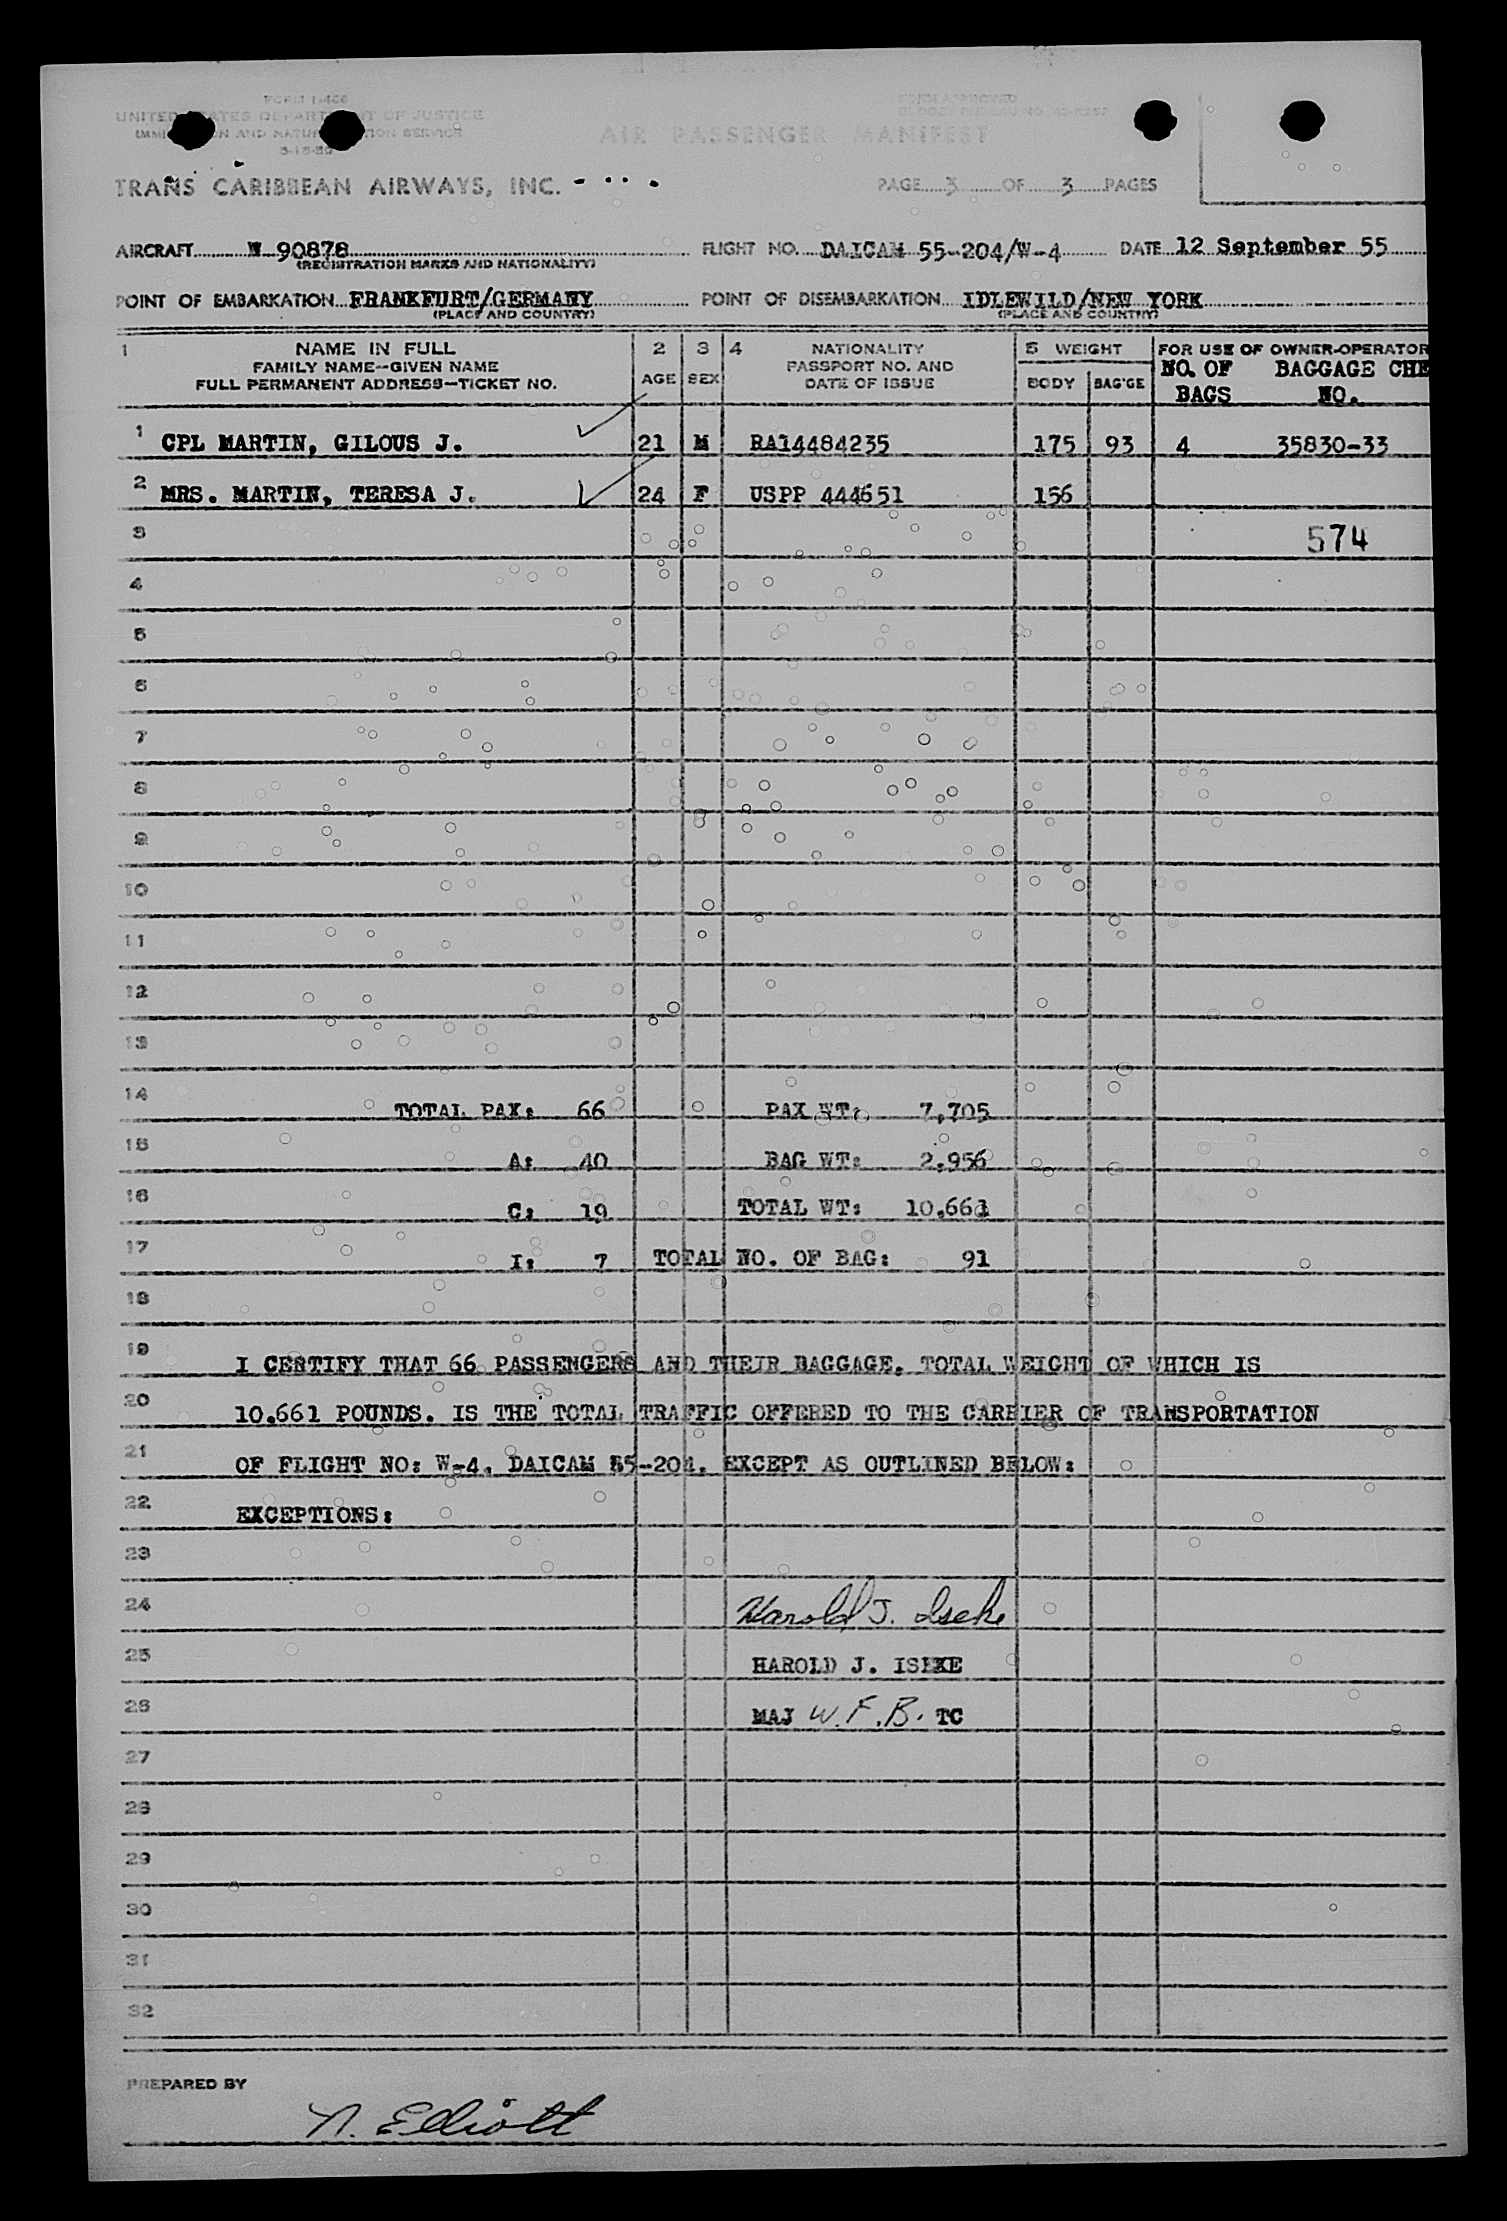 FORM I-466
UNITED STATES DEPARTMENT OF JUSTICE
IMMIGRATION AND NATURALIZATION SERVICE
AIR PASSENGER MANIFEST
FORM APPROVED
TRANS CARIBBEAN AIRWAYS, INC.
PAGE 3 OF 3 PAGES
AIRCRAFT N 90878 FLIGHT NO. DAICAM 55-204/W-4 DATE 12 September 55
(REGISTRATION MARKS AND NATIONALITY)
POINT OF EMBARKATION FRANKFURT/GERMANY POINT OF DISEMBARKATION IDLEWILD/NEW YORK
(PLACE AND COUNTRY) (PLACE AND COUNTRY)
1 NAME IN FULL 2 3 4 NATIONALITY 5 WEIGHT FOR USE OF OWNER-OPERATOR
FAMILY NAME--GIVEN NAME PASSPORT NO. AND NO. OF BAGGAGE CHE
FULL PERMANENT ADDRESS--TICKET NO. AGE SEX DATE OF ISSUE BODY BAG'GE BAGS NO.
1 CPL MARTIN, GILOUS J. 21 M RA14484235 175 93 4 35830-33
2 MRS. MARTIN, TERESA J. 24 F USPP 444651 156
3 574
4
5
6
7
8
9
10
11
12
13
14 TOTAL PAX: 66 PAX WT: 7,705
15 A: 40 BAG WT: 2,956
16 C: 19 TOTAL WT: 10,661
17 I: 7 TOTAL NO. OF BAG: 91
18
19 I CERTIFY THAT 66 PASSENGERS AND THEIR BAGGAGE, TOTAL WEIGHT OF WHICH IS
20 10,661 POUNDS. IS THE TOTAL TRAFFIC OFFERED TO THE CARRIER OF TRANSPORTATION
21 OF FLIGHT NO: W-4, DAICAM 55-204, EXCEPT AS OUTLINED BELOW:
22 EXCEPTIONS:
23
24 Harold J. Iseke
25 HAROLD J. ISEKE
26 MAJ W.F.B. TC
27
28
29
30
31
32
PREPARED BY
N. Elliott